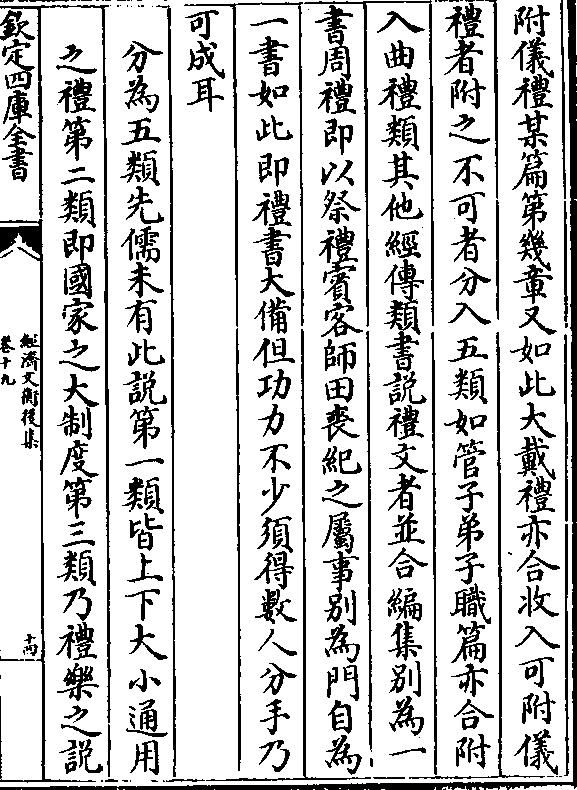 附儀禮某篇第幾章又如此大戴禮亦合收入可附儀
禮者附之不可者分入五類如管子弟子職篇亦合附
入曲禮類其他經傳類書說禮文者並合編集別為一
書周禮即以祭禮賓客師田喪紀之屬事別為門自為
一書如此即禮書大備但功力不少須得數人分手乃
可成耳
分為五類先儒未有此說第一類皆上下大小通用
之禮第二類即國家之大制度第三類乃禮樂之說
欽定四庫全書
經濟文衡後集
卷十九
十四